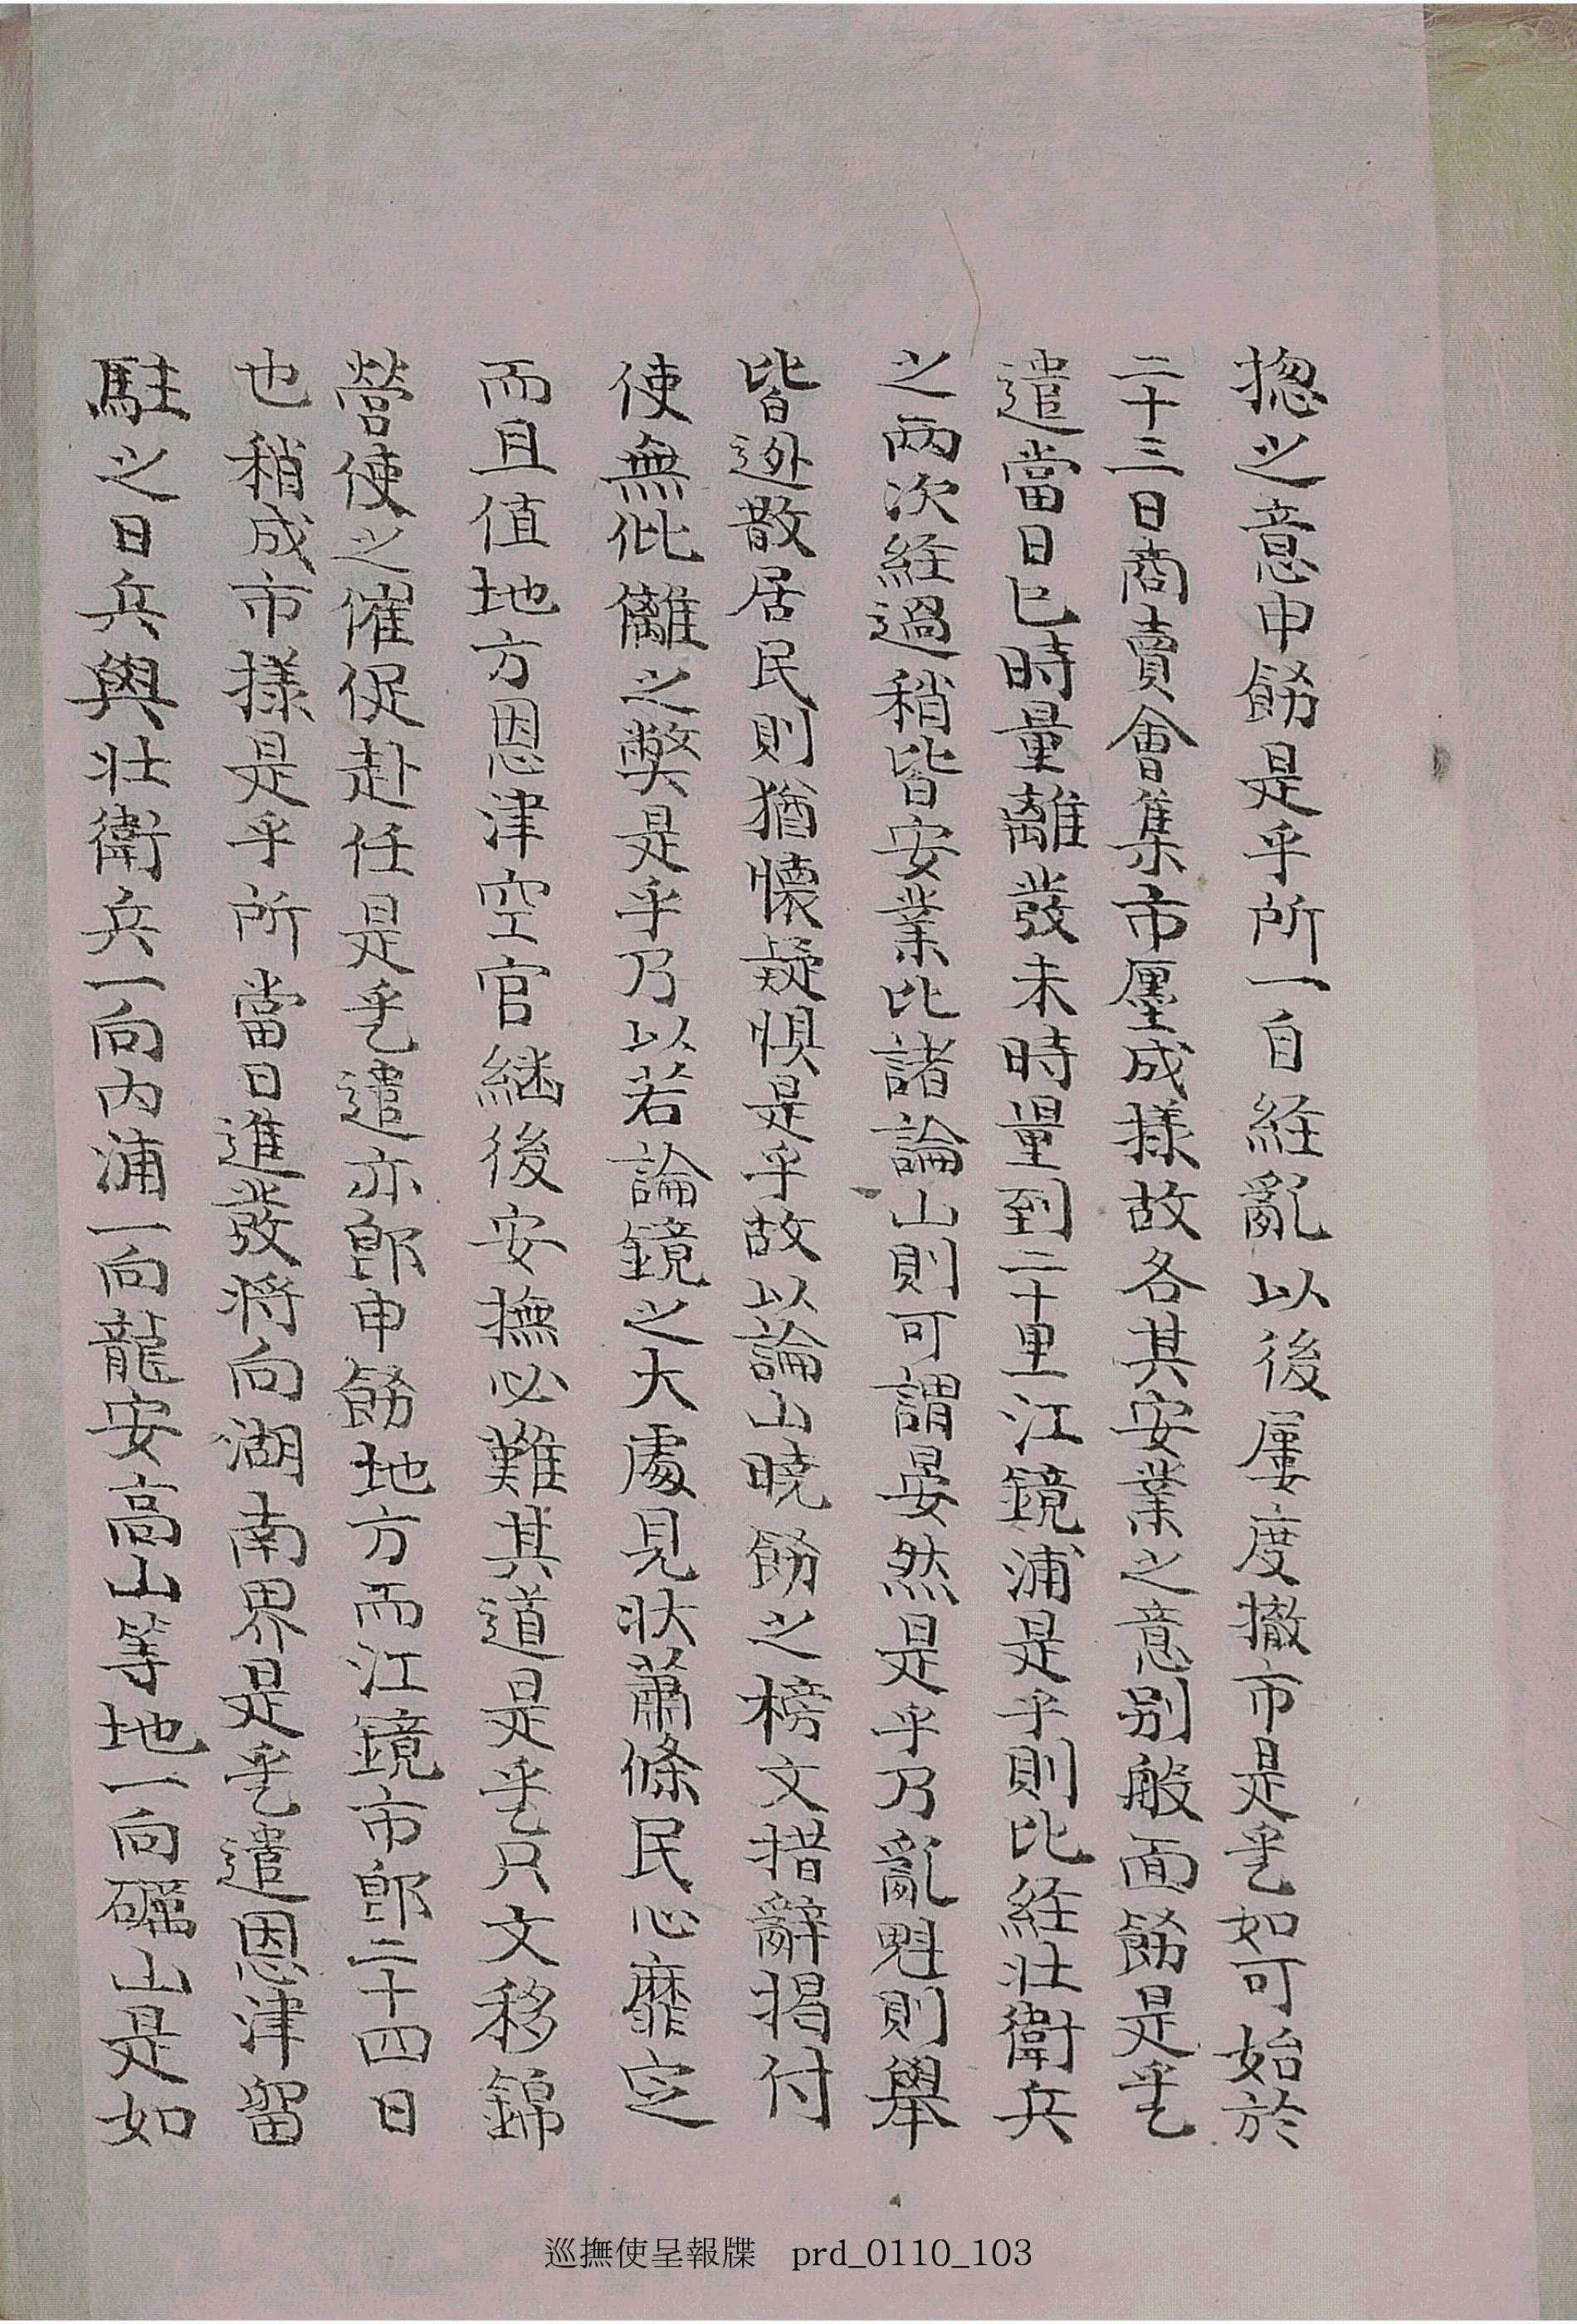 揔之意申飭是乎所一自経亂以後屢度撤市是乎乙如可始於
二十三日商賣會集市廛成㨾故各其安業之意別般面飭是乎乙
遣當日巳時量離發未時量到二十里江鏡浦是乎則比経壯衛兵
之兩次経過稍皆安業比諸論山則可謂晏然是乎乃亂魁則擧
皆迯散居民則猶懷疑惧是乎故以論山曉飭之榜文措辭揭付
使無仳離之獘是乎乃以若論鏡之大處見狀蕭條民心靡定
而且值地方恩津空官継後安撫必難其道是乎乙只文移錦
營使之催促赴任是乎乙遣亦郎申飭地方而江鏡市郎二十四日
也稍成市㨾是乎所當日進發將向湖南界是乎乙遣恩津留
駐之日兵與壯衛兵一向內浦一向龍安高山等地一向礪山是如
巡撫使呈報牒 prd_0110_103